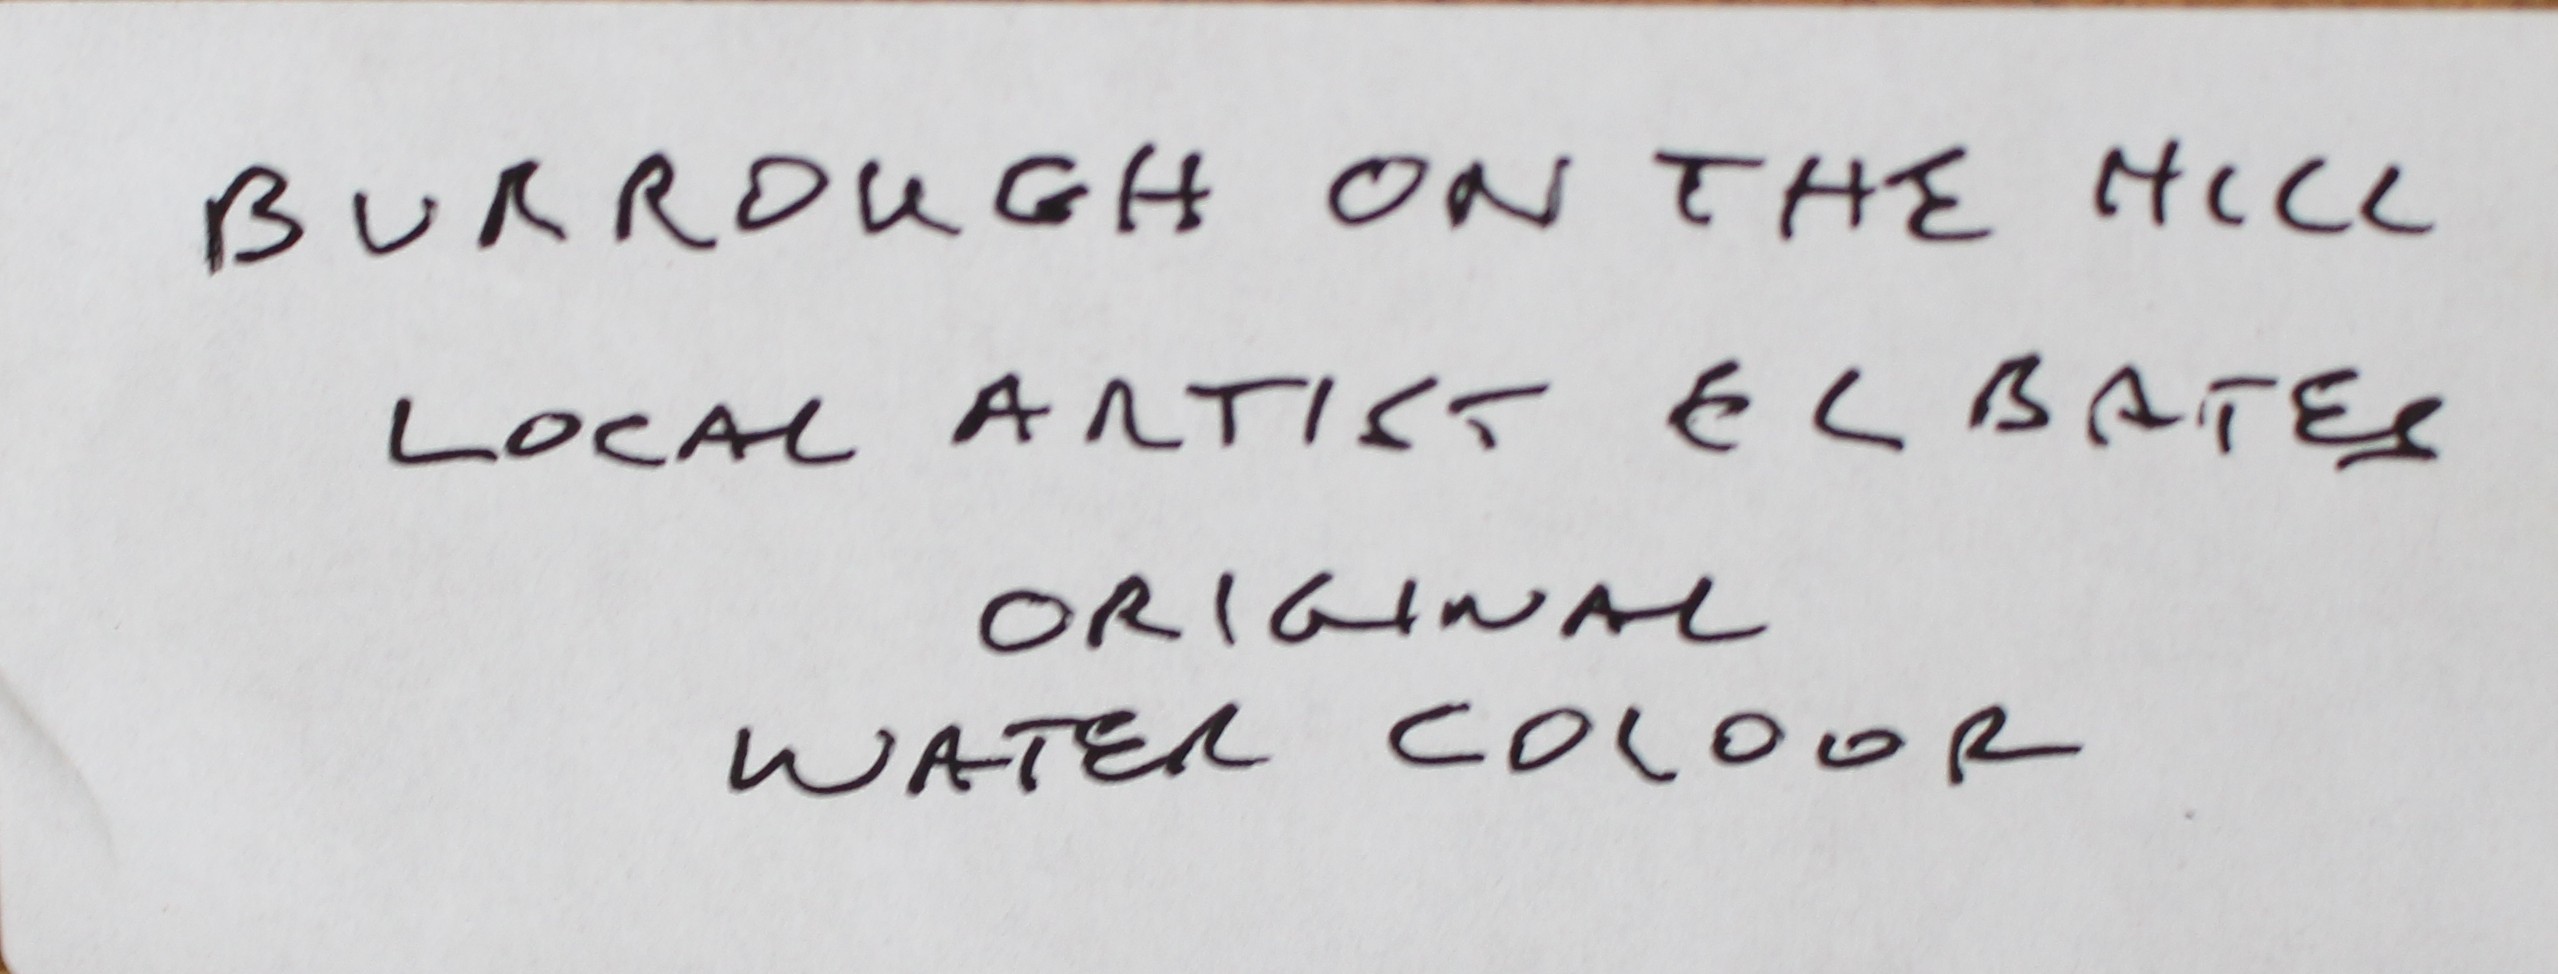 BURROUGH ON THE HILL
LOCAL ARTIST E L BATES
ORIGINAL
WATER COLOUR